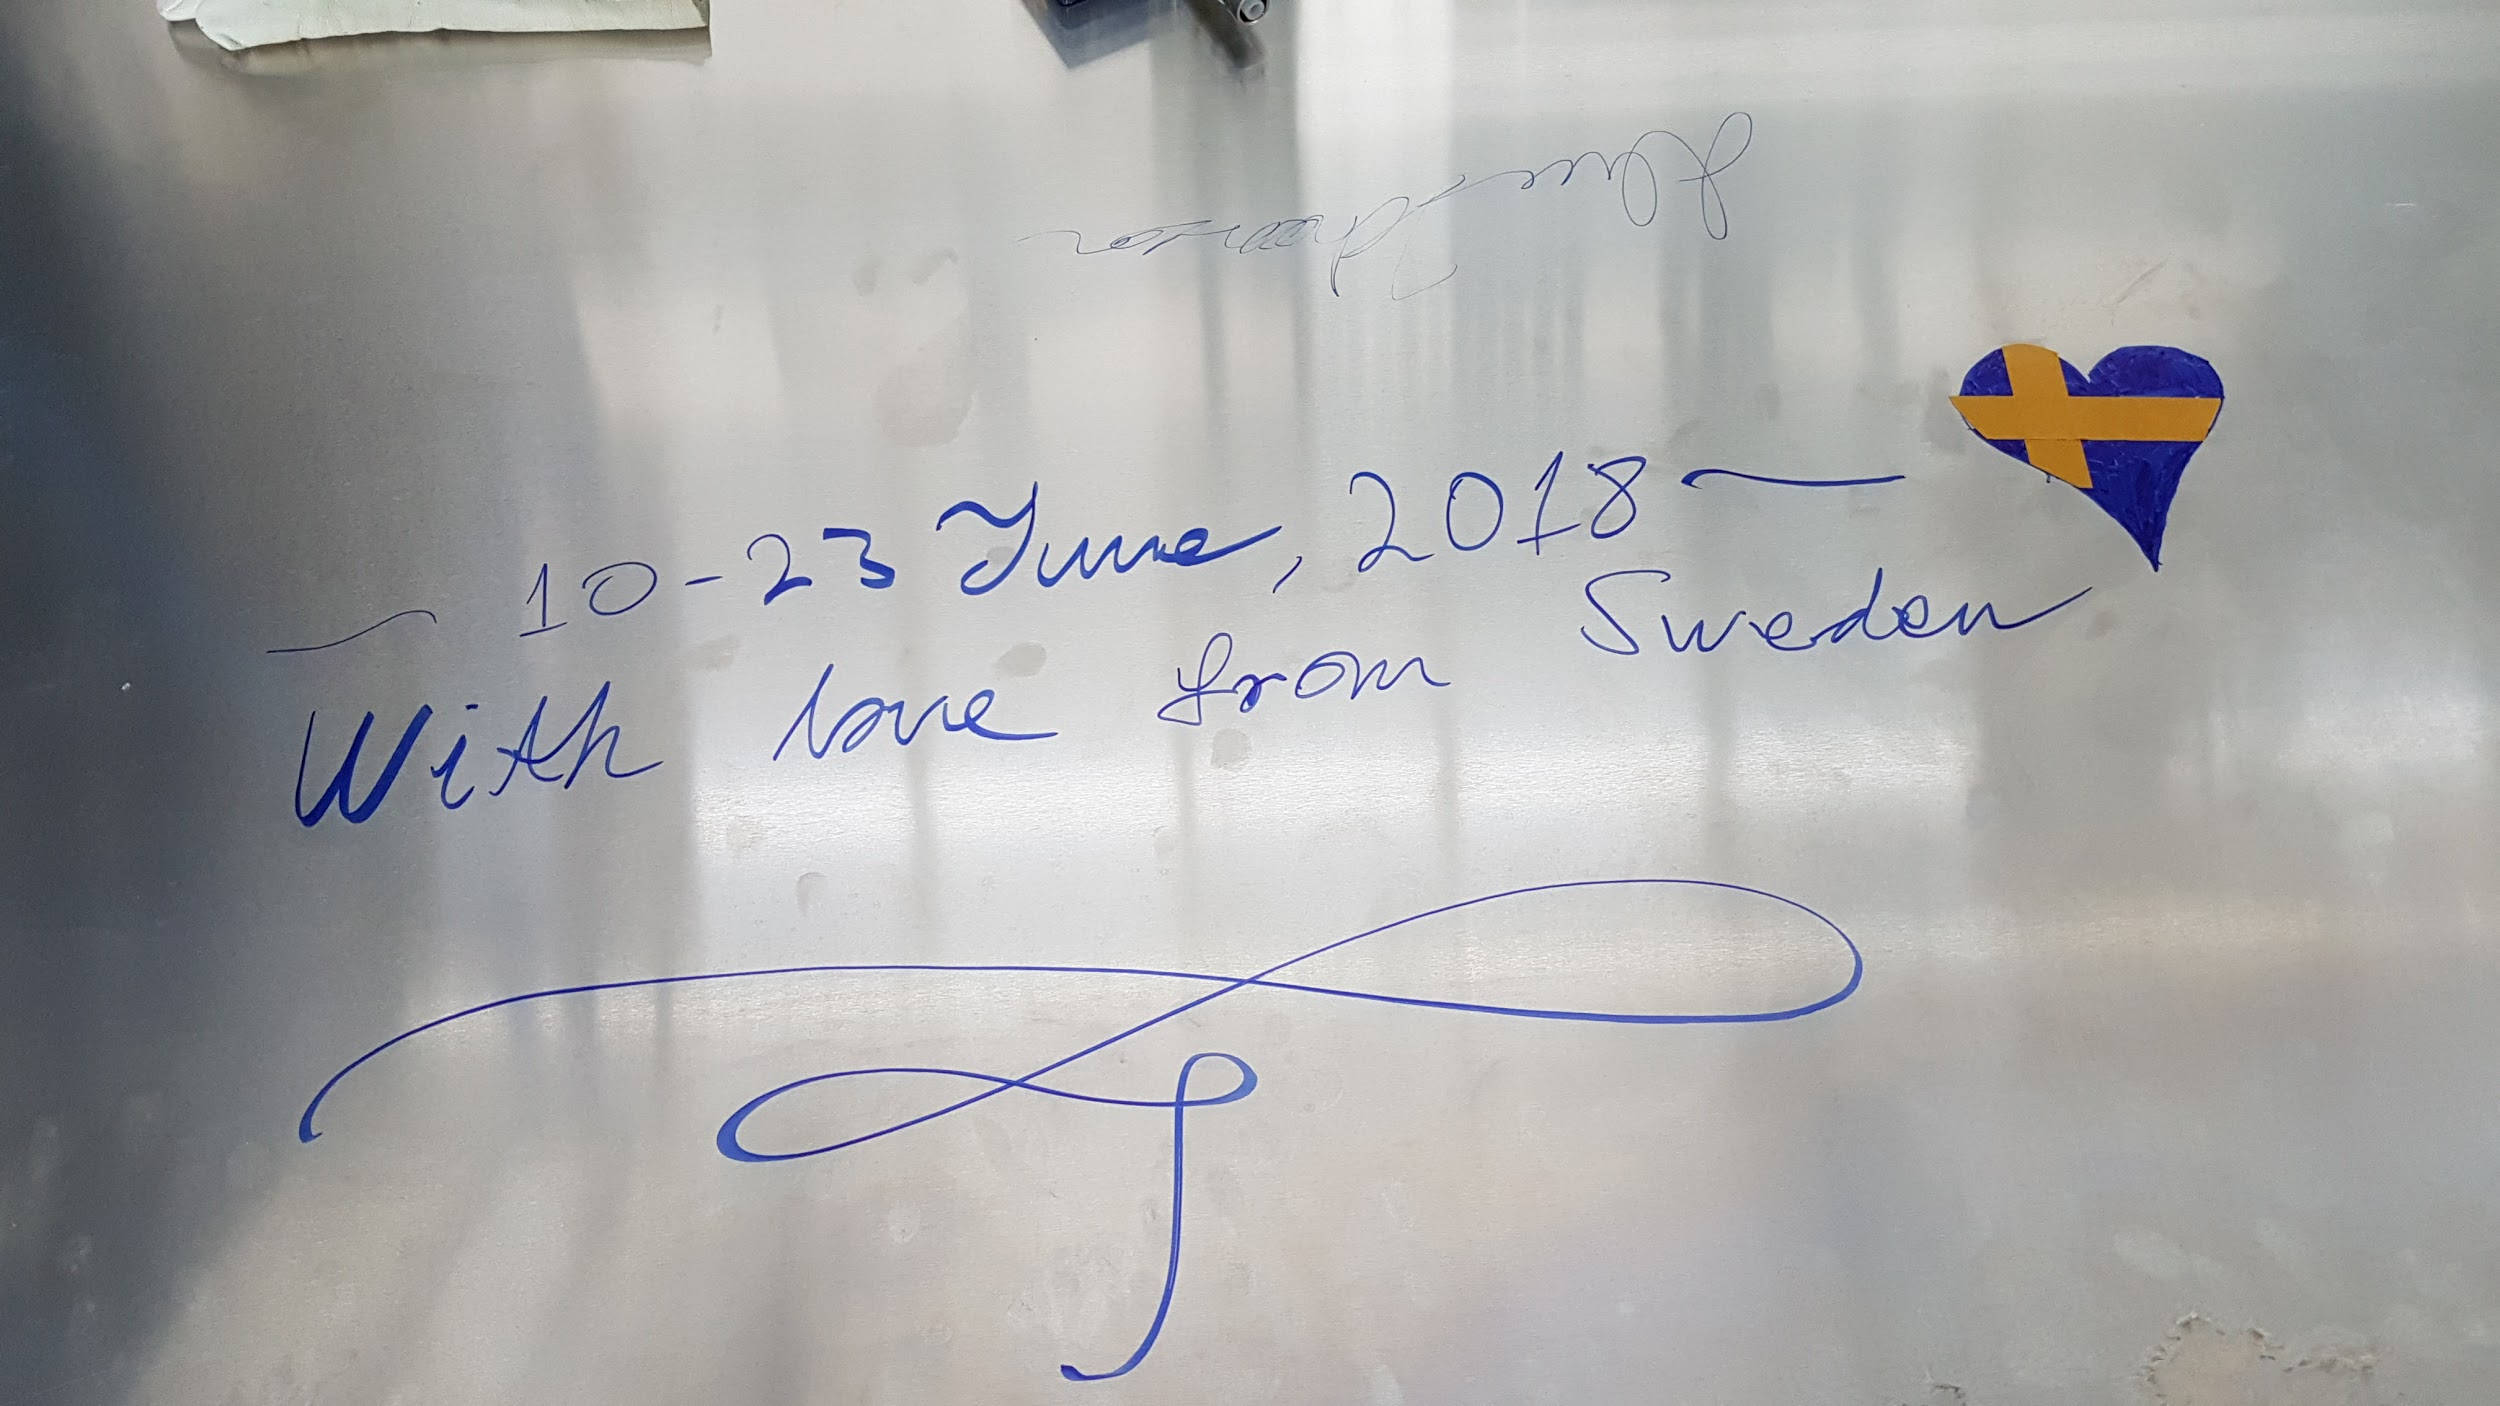 10-23 June, 2018
With love from Sweden